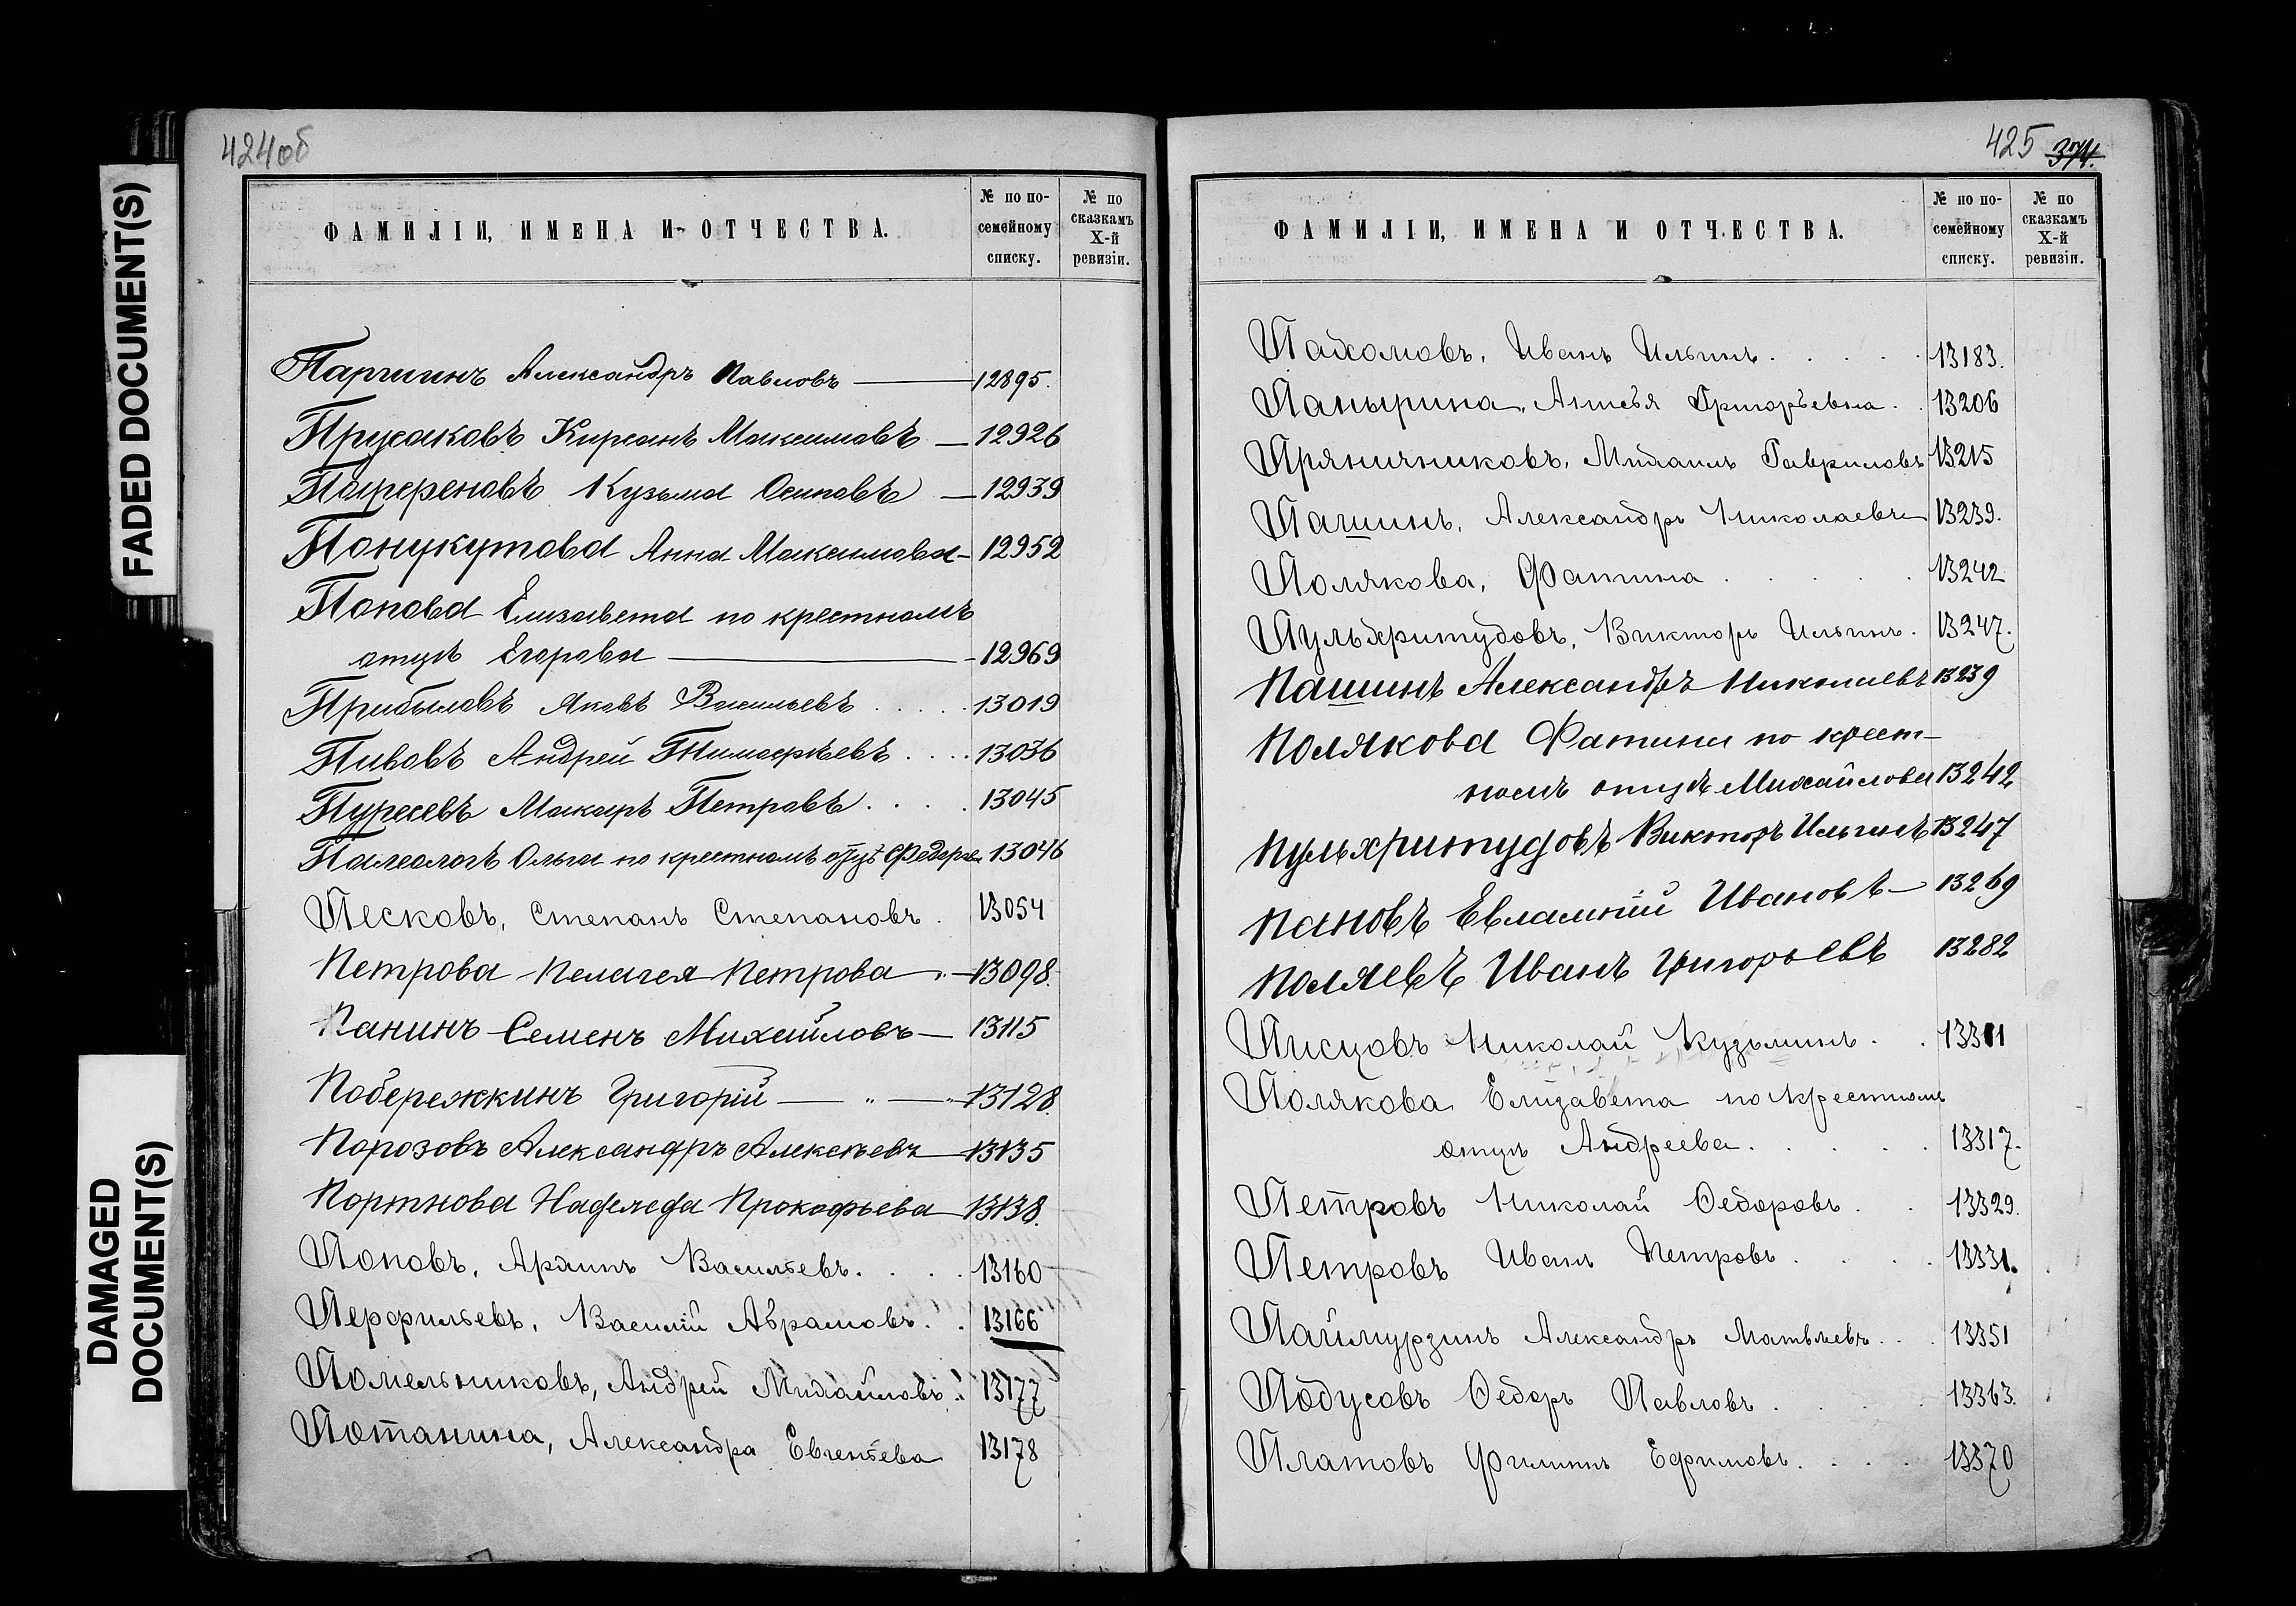 FADED DOCUMENT(S)
DAMAGED
DOCUMENT(S)
424об
ФАМИЛІИ, ИМЕНА И ОТЧЕСТВА.
№ по по-
семейному
списку.
№ по
сказкамъ
X-й
ревизіи.
Паршинъ Александръ Павловъ — 12895.
Прусаковъ Кирсанъ Максимовъ — 12926
Парфеновъ Кузьма Осиповъ — 12939
Понукутова Анна Максимова — 12952
Попова Елизавета по крестномъ
отцѣ Егорова — 12969
Прибыловъ Яковъ Васильевъ . . . . . 13019
Пивовъ Андрей Тимофѣевъ . . . . 13036
Макаръ Петровъ . . . . 13045
Палеологъ Ольга по крестномъ отцѣ 13046
Песковъ, Степанъ Степановъ . 13054
Петрова Пелагея Петрова — 13098.
Панинъ Семенъ Михайловъ — 13115
Побережкинъ Григорій — „ — 13128.
Порозовъ Александръ Алексѣевъ — 13135
Портнова Надежда Прокофьева — 13138.
Поповъ, Архипъ Васильевъ. . . . 13160
Перфильевъ, Василій Абрамовъ. . 13166
Помельниковъ, Андрей Михайловъ. . 13177
Потанина, Александра Евгеньева 13178
425 374.
ФАМИЛІИ, ИМЕНА И ОТЧЕСТВА.
№ по по-
семейному
списку.
№ по
сказкамъ
X-й
ревизіи.
Пахомовъ, Иванъ Ильинъ. . . . . 13183.
Панырина, Анисья Григорьевна. . 13206
Пряничниковъ, Михаилъ Гавриловъ 13215
Пашинъ, Александръ Николаевъ 13239.
Полякова, Фатина . . . . . 13242
Пульхритудовъ, Викторъ Ильинъ. 13247.
Пашинъ Александръ Николаевъ 13239
Полякова Фатина по крест-
номъ отцѣ Михайлова 13242
Пульхритудовъ Викторъ Ильинъ 13247
Пановъ Евлампій Ивановъ — 13269
Поляевъ Иванъ Григорьевъ 13282
Писцовъ Николай Кузьминъ . . 13311
Полякова Елизавета по крестномъ
отцѣ Андреева . . . . . 13317.
Петровъ Николай Ѳедоровъ . . 13329.
Петровъ Иванъ Петровъ . . . . 13331.
Паймурзинъ Александръ Матвѣевъ. . . 13351
Подусовъ Ѳедоръ Павловъ . . . . 13363.
Платовъ Филиппъ Ефимовъ. . . . 13370